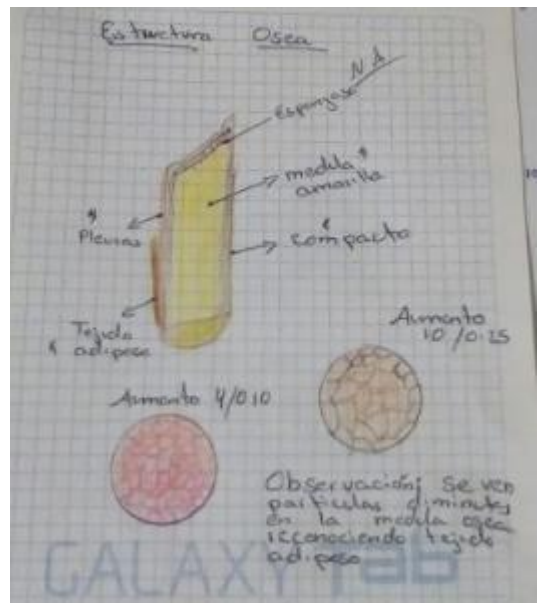 Estructura Osea
N A
Esponjoso
medula
amarilla
Pleuras
compacto
Tejido
adiposo
Aumento
10/0.25
Aumento 4/0.10
Observación; Se ven
particulas diminutas
en la medula osea
reconociendo tejido
adiposo
GALAXY Tab